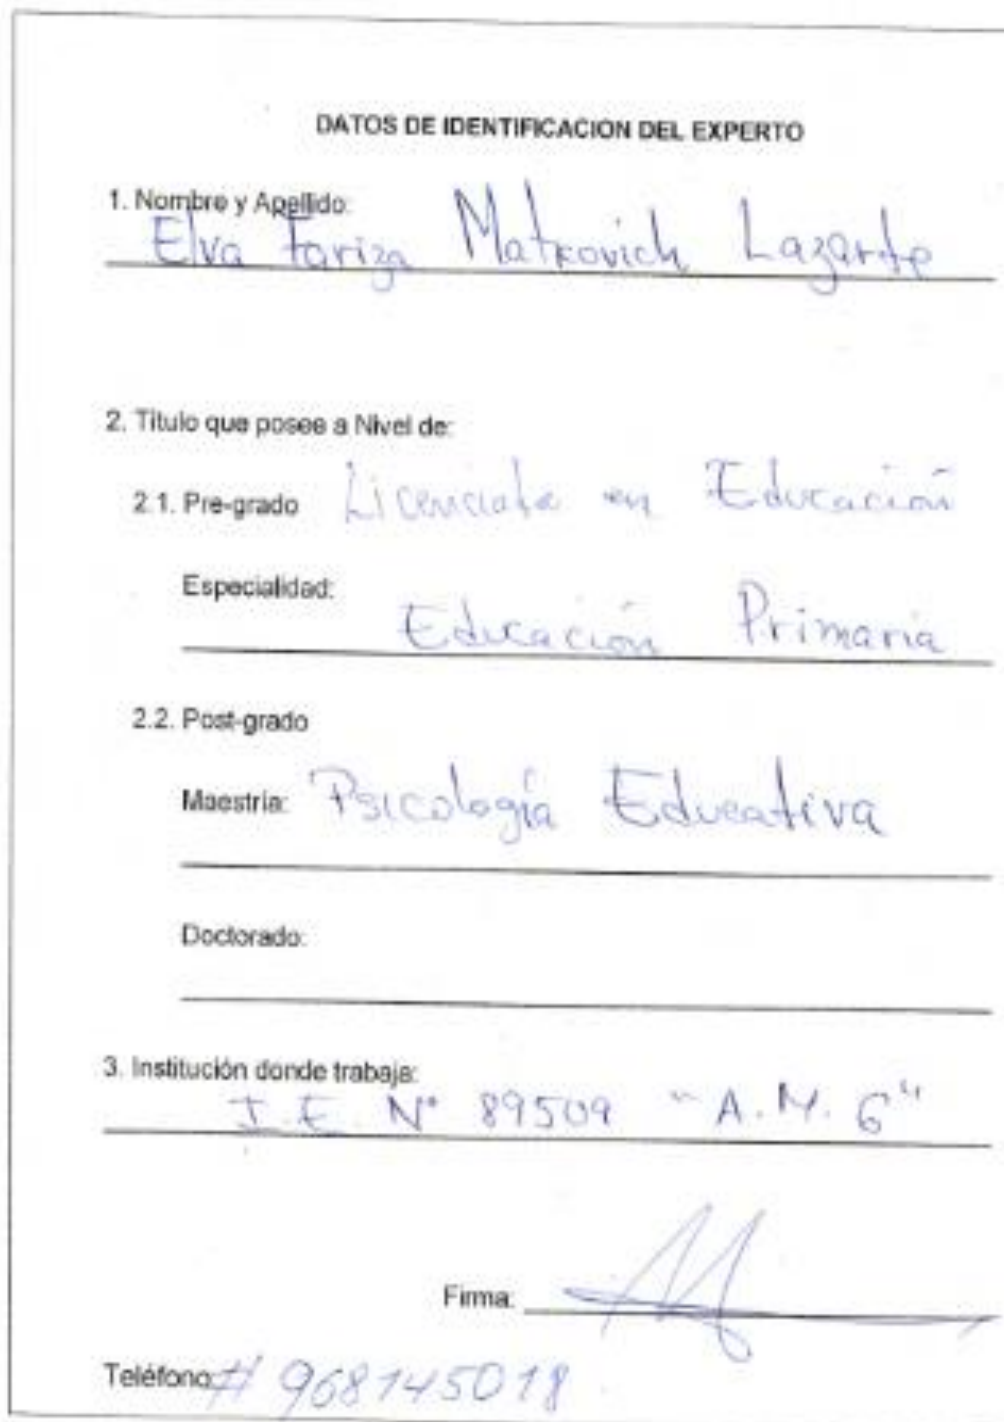 DATOS DE IDENTIFICACION DEL EXPERTO
1. Nombre y Apellido:
Elva Fariza Matkovich Lazarte
2. Título que posee a Nivel de:
2.1. Pre-grado Licenciada en Educación
Especialidad:
Educación Primaria
2.2. Post-grado
Maestría: Psicología Educativa
Doctorado:
3. Institución donde trabaja:
I.E. N° 89509 "A.M. G"
Firma:
Teléfono: # 968145018